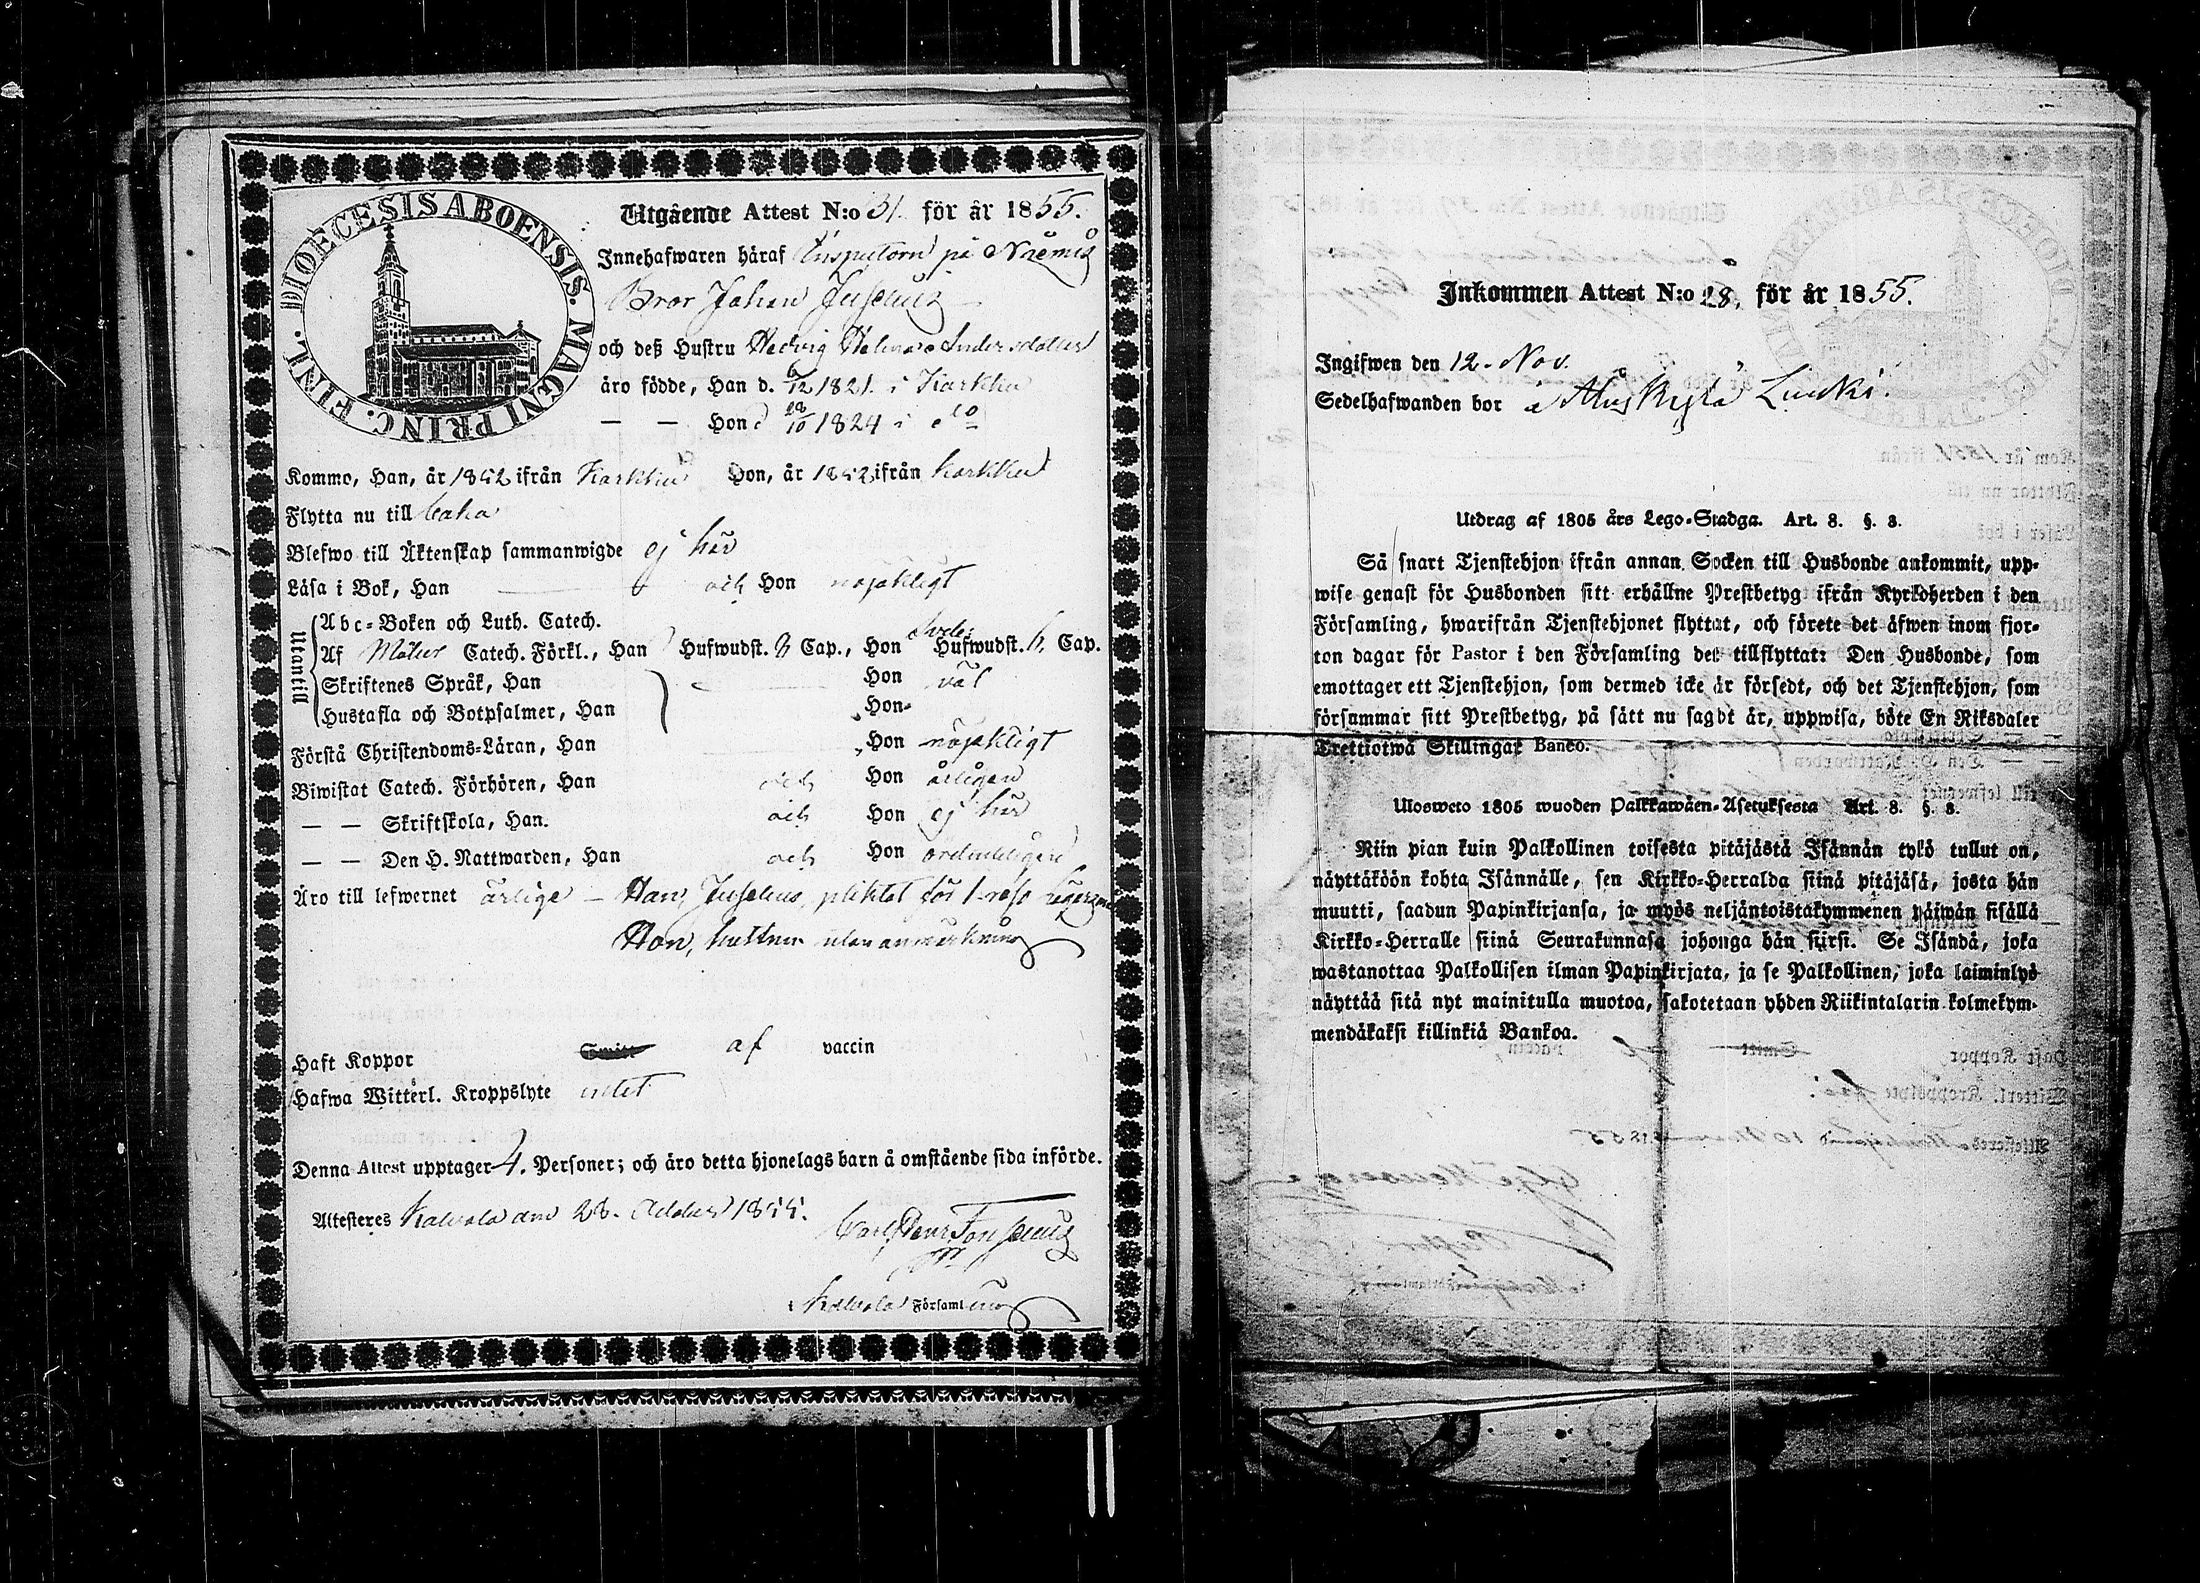 DIOECESIS ABOENSIS. MAGNI PRINC. FINL.
Utgående Attest N:o 31 för år 1855.
Innehafwaren häraf Inspectorn på Niemis
Bror Johan Juselius
och deß Hustru Hedvig Helena Andersdotter
äro födde, Han d. 6/12 1821 i Karkku
— — Hon d 28/10 1824 i do
Kommo, Han, år 1852 ifrån Karkku Hon, år 1852 ifrån Karkku
Flytta nu till
Blefwo till Äktenskap sammanwigde ej här
Läsa i Bok, Han — och Hon nöjaktigt
Utantill
Abc-Boken och Luth. Catech.
Af Catech. Förkl., Han Hufwudst. 8 Cap., Hon Hufwudst. Cap.
Skriftenes Språk, Han — Hon väl
Hustafla och Botpsalmer, Han Hon
Förstå Christendoms-Läran, Han — Hon nöjaktigt
Biwistat Catech. Förhören, Han och Hon årligen
— — Skriftskola, Han. och Hon ej här
— — Den H. Nattwarden, Han och Hon ordentligen
Äro till lefwernet ärlige — Han, Juselius, pliktat för 1. resa
Hon, hustrun utan anmärkning
Haft Koppor Smitt af vaccin
Hafwa Witterl. Kroppslyte intet
Denna Attest upptager 4. Personer; och äro detta hjonelags barn å omstående sida införde.
Attesteres Kalvola den 28. October 1855.
Carl
Kalvola Församling
Inkommen Attest N:o 28, för år 1855.
Ingifwen den 12. Nov.
Sedelhafwanden bor å
Utdrag af 1805 års Lego-Stadga. Art. 8. §. 8.
Så snart Tjenstehjon ifrån annan Socken till Husbonde ankommit, upp-
wise genast för Husbonden sitt erhållne Prestbetyg ifrån Kyrkoherden i den
Församling, hwarifrån Tjenstehjonet flyttat, och förete det äfwen inom fjor-
ton dagar för Pastor i den Församling det tillflyttat: Den Husbonde, som
emottager ett Tjenstehjon, som dermed icke är försedt, och det Tjenstehjon, som
försummar sitt Prestbetyg, på sätt nu sagdt är, uppwisa, böte En Riksdaler
Trettiotwå Skillingar Banco.
Ulosweto 1805 wuoden Palkkawäen-Asetuksesta Art. 8. §. 8.
Niin pian kuin Palkollinen toisesta pitäjästä Isännän tykö tullut on,
näyttäköön kohta Isännälle, sen Kirkko-Herralda siinä pitäjäsä, josta hän
muutti, saadun Papinkirjansa, ja myös neljäntoistakymmenen päiwän sisällä
Kirkko-Herralle siinä Seurakunnasa johonga hän siirsi. Se Isändä, joka
wastanottaa Palkollisen ilman Papinkirjata, ja se Palkollinen, joka laiminlyö
näyttää sitä nyt mainitulla muotoa, sakotetaan yhden Riikintalarin kolmekym-
mendäkaksi killinkiä Bankoa.